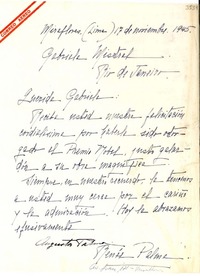 CORREO AEREO
Miraflores, (Lima) 17 de noviembre, 1945.
Gabriela Mistral
Rio de Janeiro
Querida Gabriela:
Reciba usted nuestra felicitación
cordialísima por haberle sido otor-
gado el Premio Nobel, justo galar-
dón a su obra magnífica.
Siempre en nuestro recuerdo la tenemos
a usted muy cerca por el cariño
y la admiración. Hoy la abrazamos
efusivamente
Augusta Palma
Renée Palma